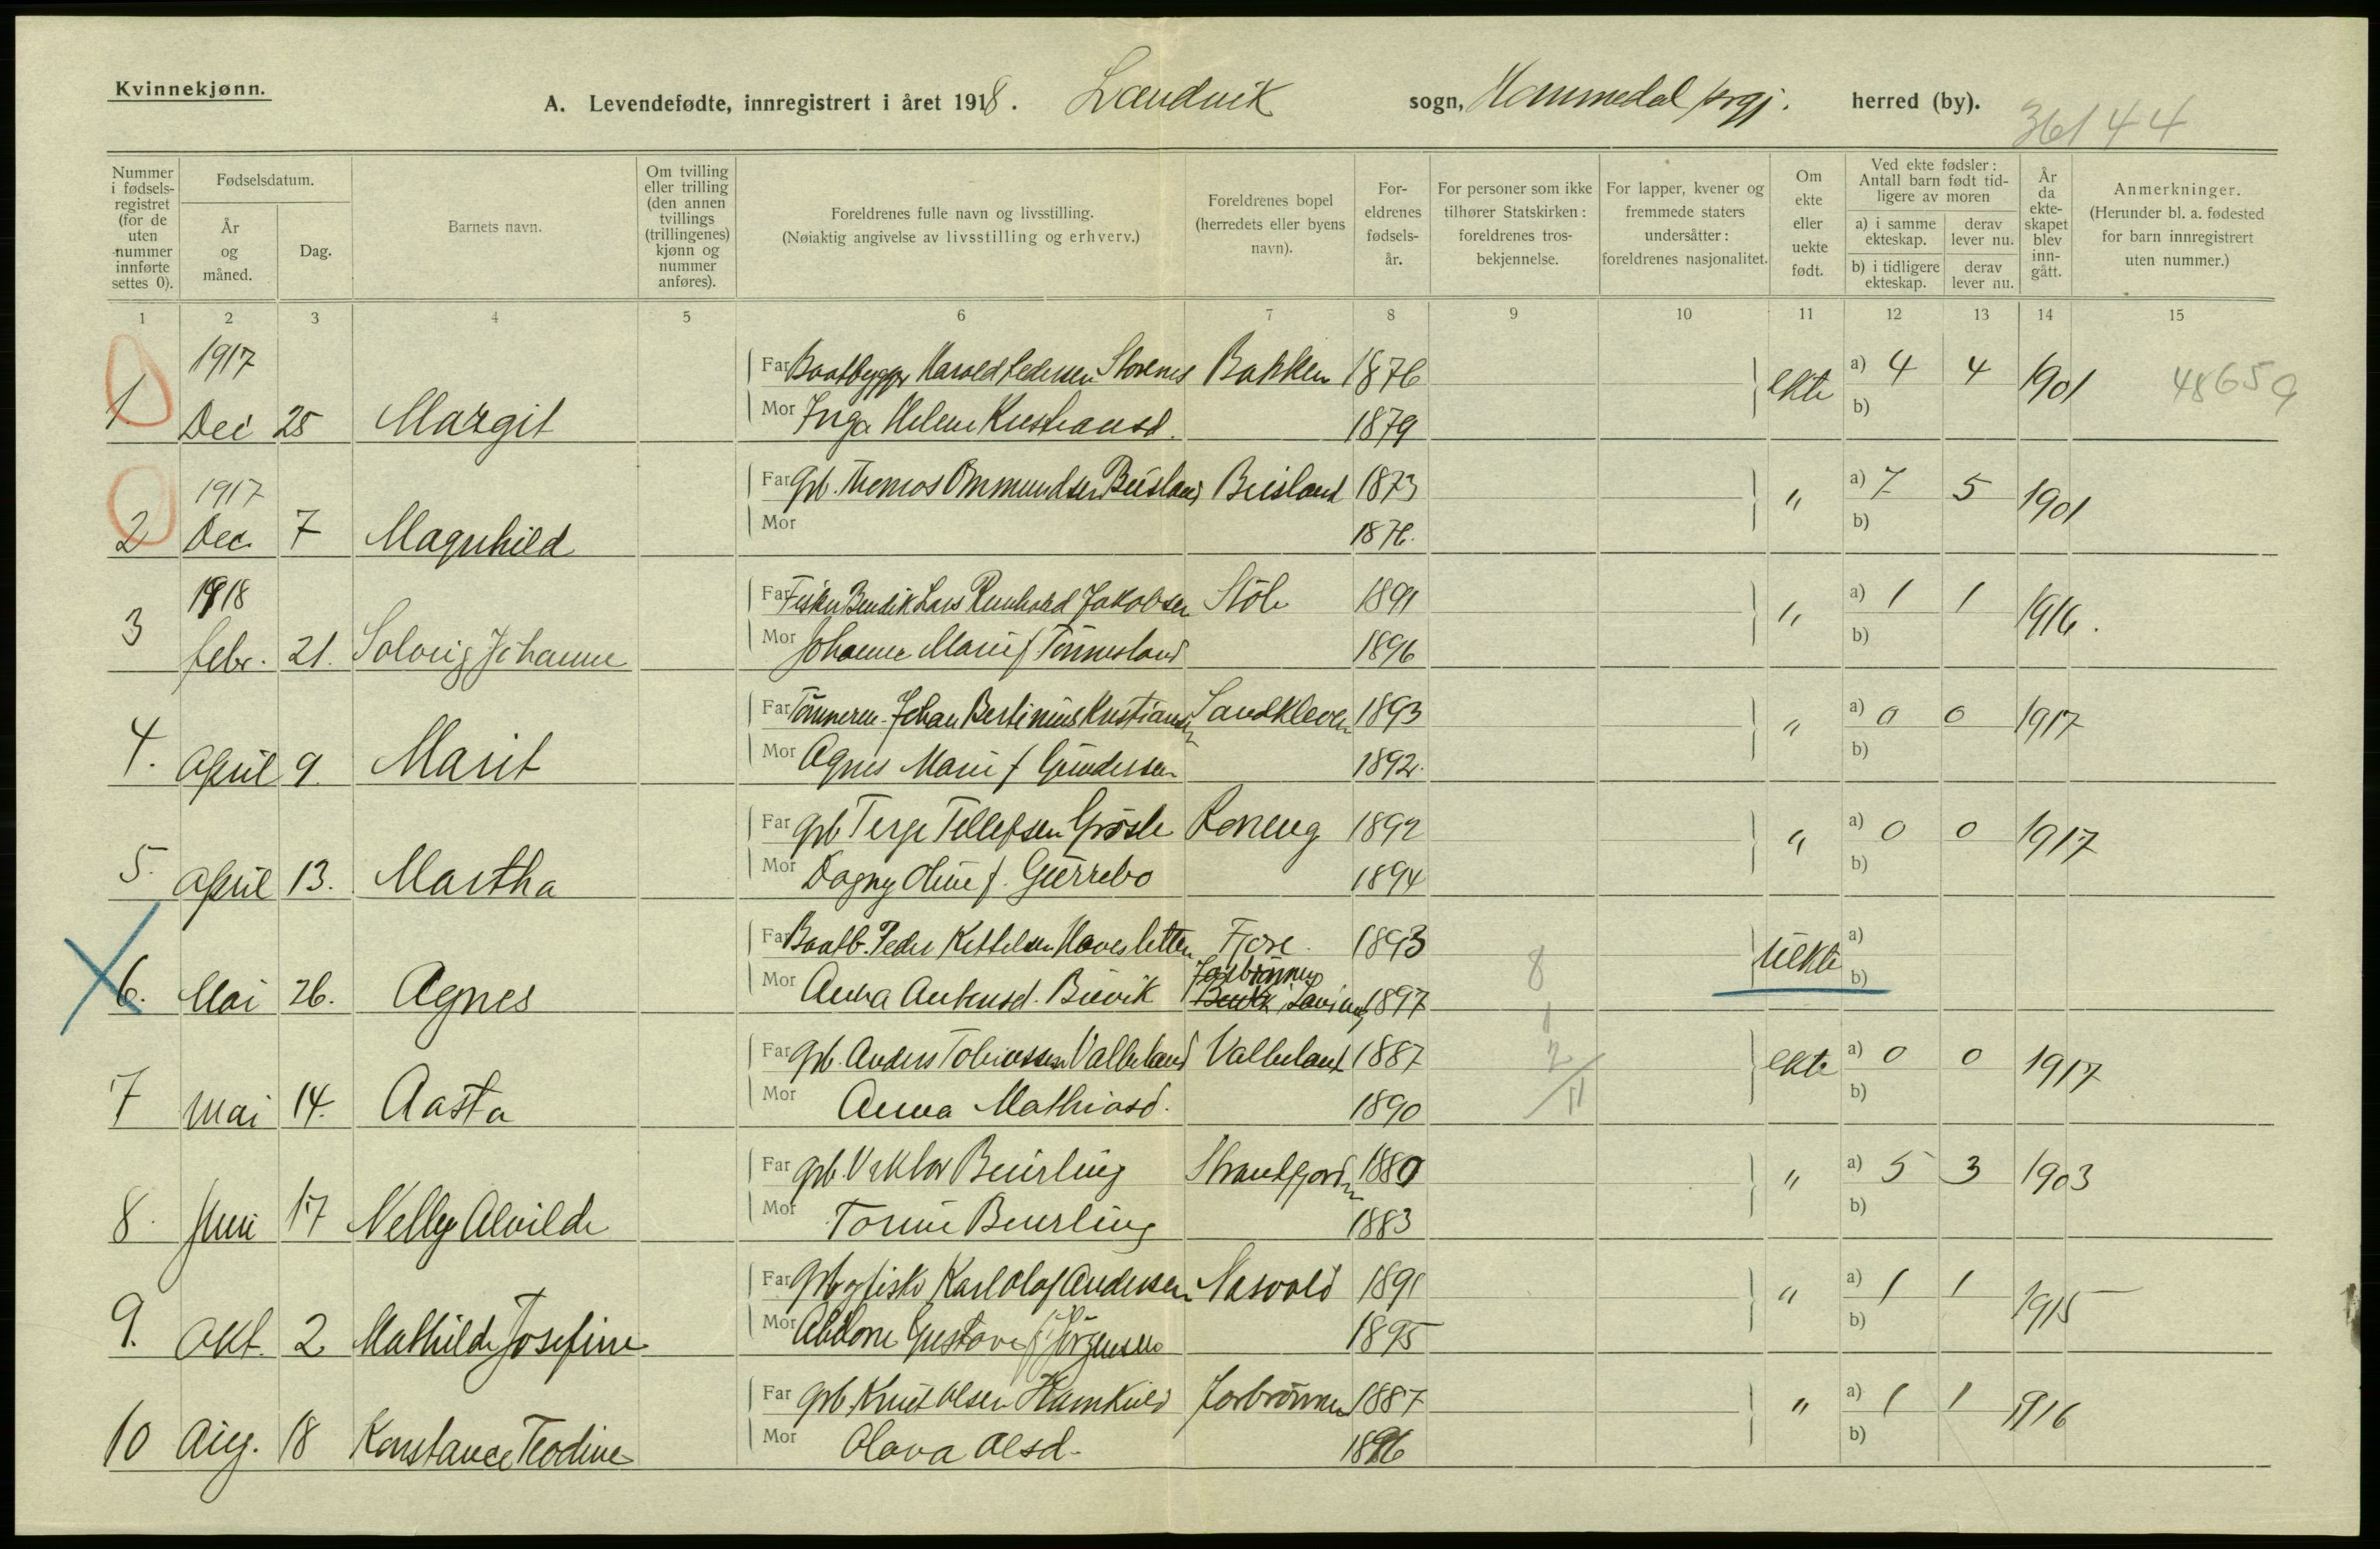 Kvinnekjønn.
A. Levendefødte, innregistrert i året 1918. Landvik sogn, Hommedal prgj. herred (by).
36144
Nummer i fødsels-registret (for de uten nummer innførte settes 0).
Fødselsdatum.
År og måned.
Dag.
Barnets navn.
Om tvilling eller trilling (den annen tvillings (trillingenes) kjønn og nummer anføres).
Foreldrenes fulle navn og livsstilling.
(Nøiaktig angivelse av livsstilling og erhverv.)
Foreldrenes bopel (herredets eller byens navn).
For-eldrenes fødsels-år.
For personer som ikke tilhører Statskirken: foreldrenes tros-bekjennelse.
For lapper, kvener og fremmede staters undersåtter: foreldrenes nasjonalitet.
Om ekte eller uekte født.
Ved ekte fødsler: Antall barn født tid-ligere av moren
a) i samme ekteskap. derav lever nu.
b) i tidligere ekteskap. derav lever nu.
År da ekte-skapet blev inn-gått.
Anmerkninger.
(Herunder bl. a. fødested for barn innregistrert uten nummer.)
1 2 3 4 5 6 7 8 9 10 11 12 13 14 15
1917
Far Baatbygger Harald Pedersen Bakken 1876 ekte a) 4 4 1901 48659
1. Dec 25 Margit Mor Inga Helene 1879 b)
1917
Far Grb. Thomas Ommundsen Beisland Beisland 1873 " a) 7 5 1901
2 Dec. 7 Magnhild Mor 1876. b)
1918
Far Fisker Bendik Lars Reinhold Jakobsen Støle 1891 " a) 1 1 1916.
3 febr. 21. Solveig Johanne Mor Johanne Marie f. Tønnesland 1896 b)
Far Johan Bertinius Kristiansen Sandkleven 1893 " a) 0 0 1917
4. April 9. Marit Mor Agnes Marie f Gundersen 1892. b)
Far Grb Terje Tellefsen 1892 " a) 0 0 1917
5. April 13. Martha Mor Dagny Oline f. 1894 b)
Far Baatb. Peder Kittelsen Havesletten Fjære. 1893 uekte a)
6. Mai 26. Agnes Mor Anna Bievik 1897 8 b)
Far Grb. Anders Tobiassen Valleland Valleland 1887 ekte a) 0 0 1917
7 Mai 14. Aasta Mor Anna Mathiasd. 1890 b)
Far Grb. Viktor Beurling Strandfjorden 1880 " a) 5 3 1903
8. Juni 17 Nelly Alvilde Mor Tomine Beurling 1883 b)
Far Grb og fisker Karl Olaf Andersen 1891 " a) 1 1 1915
9. Okt. 2 Mathilde Josefine Mor Gustava f. Jørgensen 1895 b)
Far Grb. Knut Olsen 1887 " a) 1 1 1916
10 Aug. 18 Konstance Teodine Mor Olava Olsd. 1896 b)